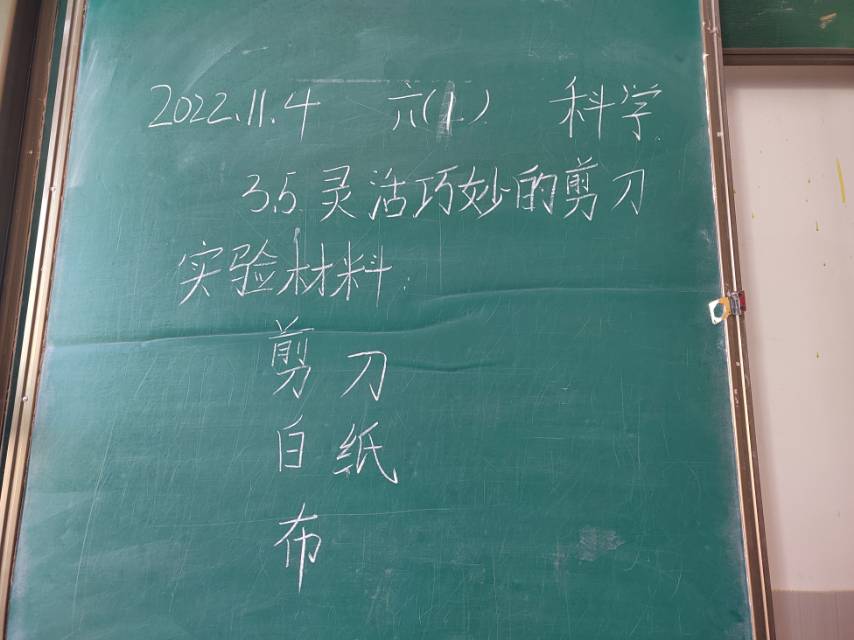 2022.11.4 六(1) 科学
3.5 灵活巧妙的剪刀
实验材料:
剪刀
白纸
布